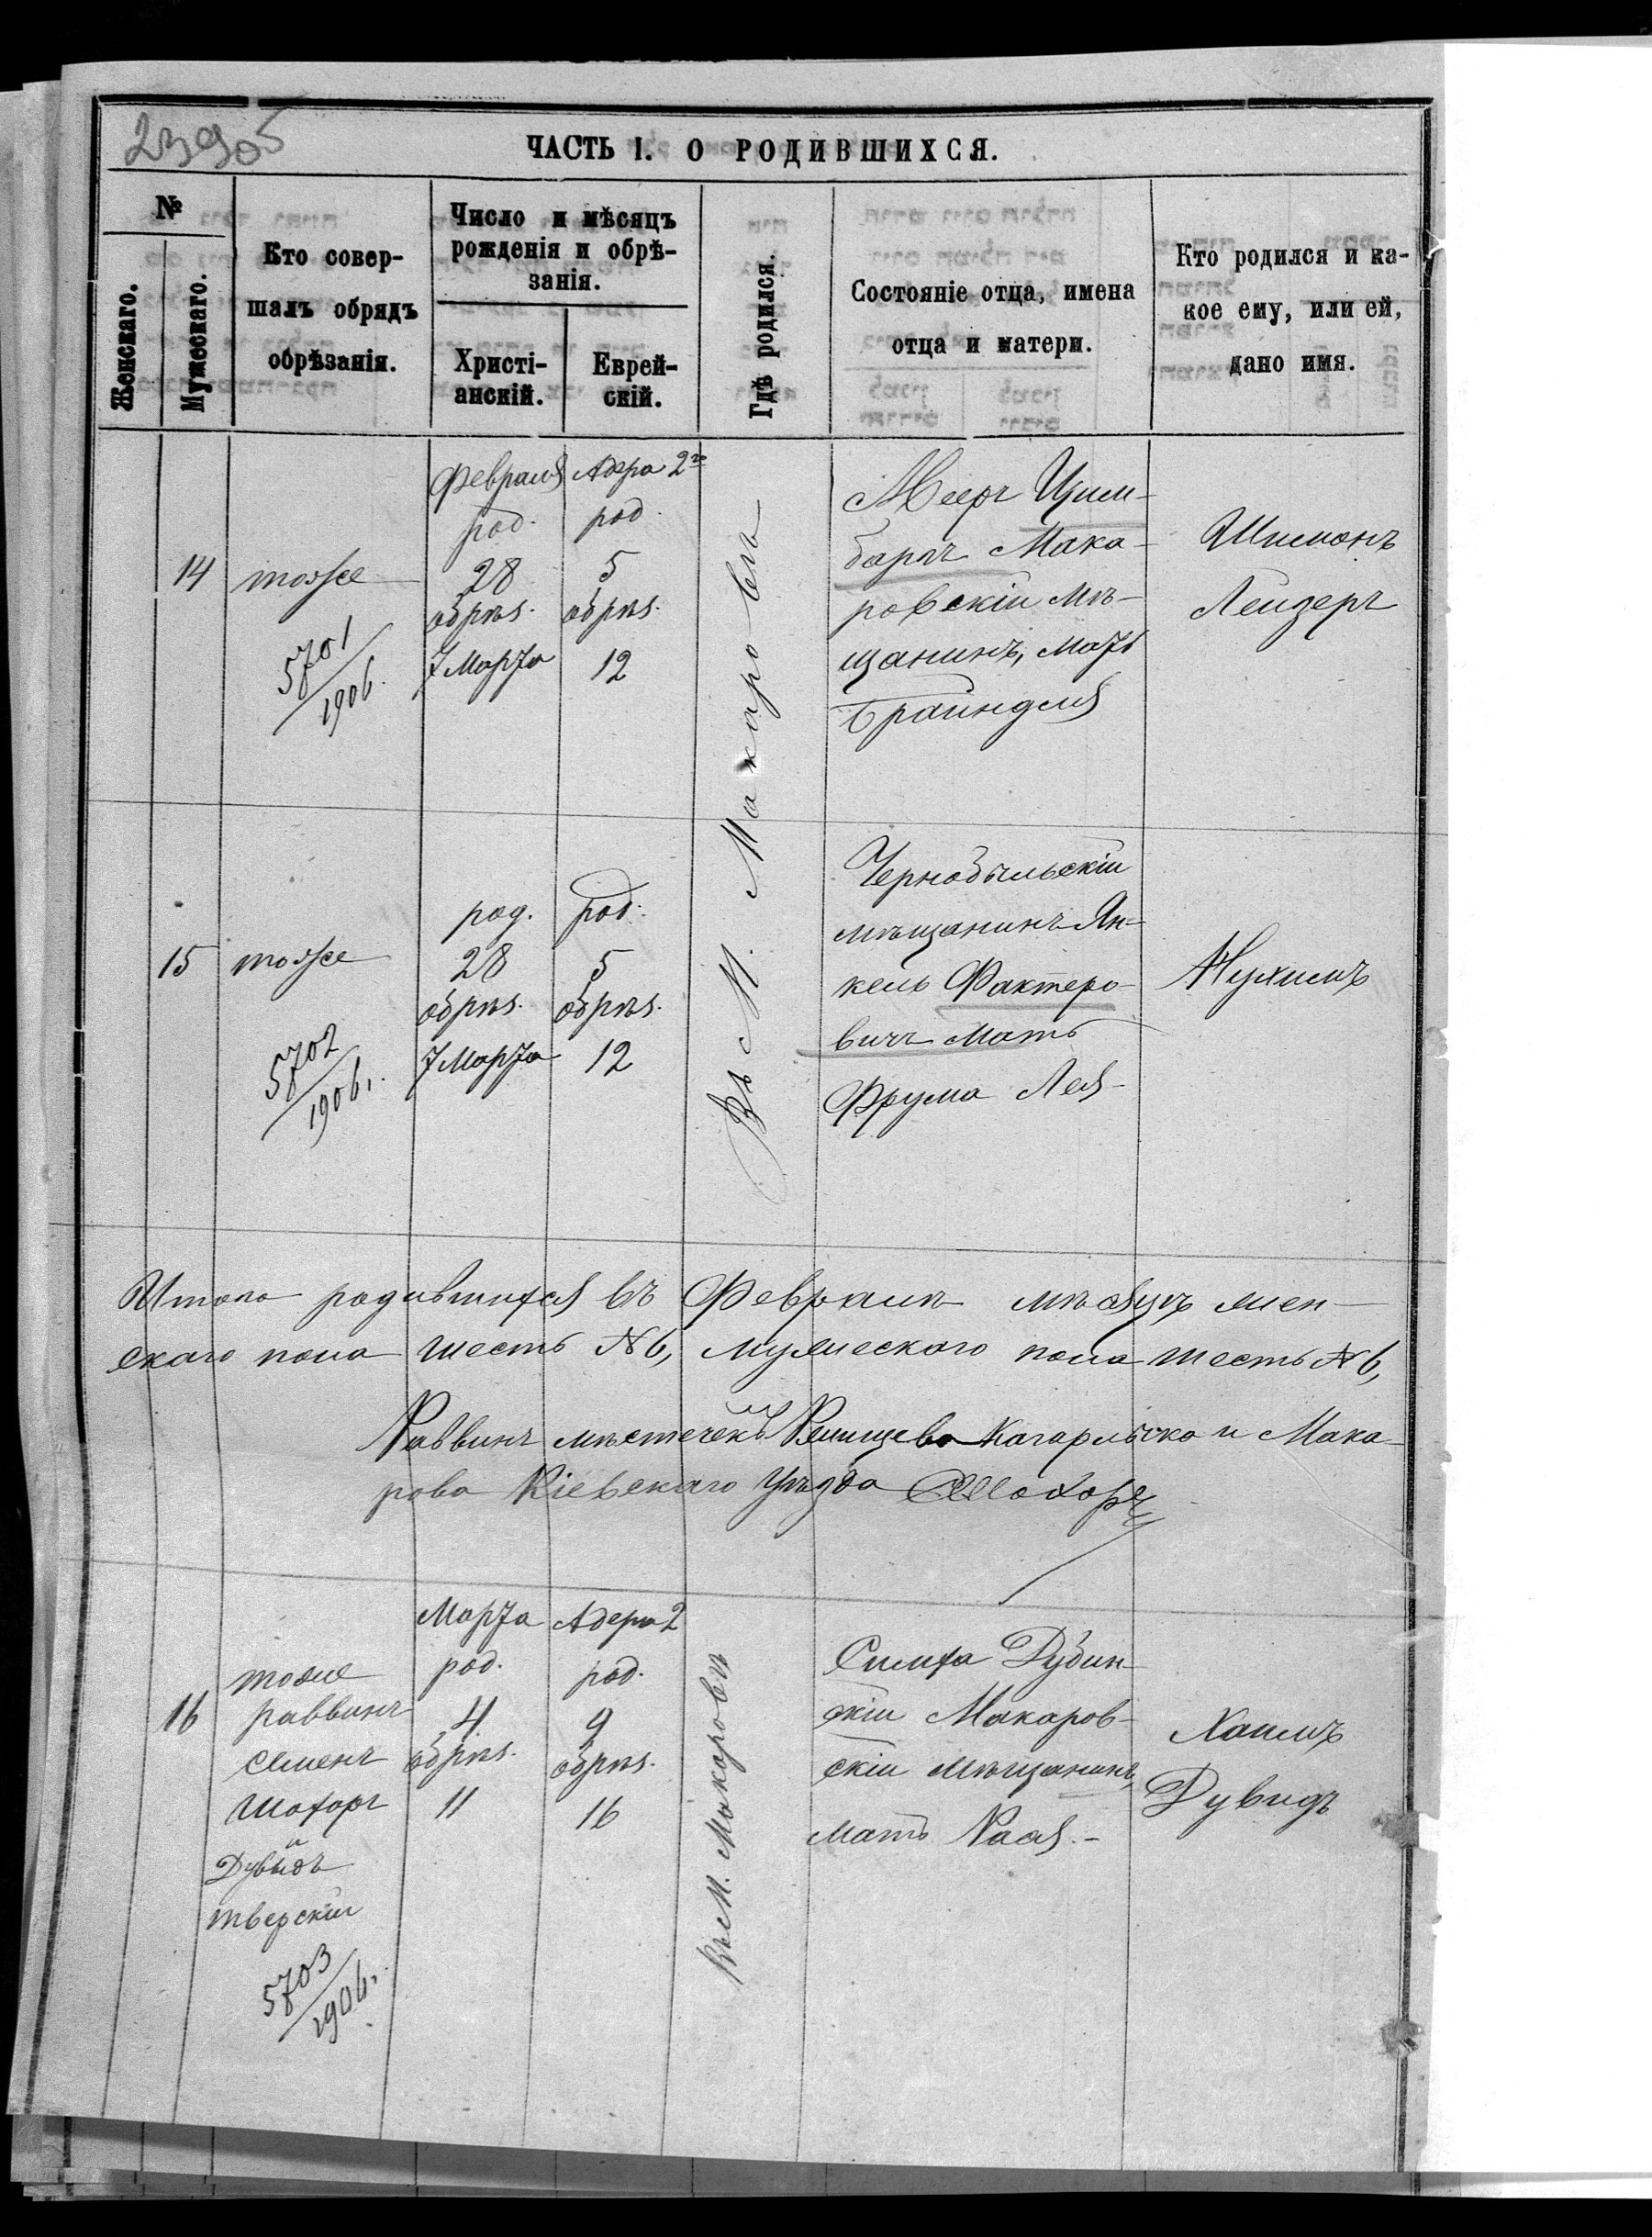 23905
ЧАСТЬ I. О РОДИВШИХСЯ.
№
Женскаго.
Мужескаго.
Кто совер-
шалъ обрядъ
обрѣзанія.
Число и мѣсяцъ
рожденія и обрѣ-
занія.
Христі-
анскій.
Еврей-
скій.
Гдѣ родился.
Состояніе отца, имена
отца и матери.
Кто родился и ка-
кое ему, или ей,
дано имя.
14
тоже
5701/1906.
Февраля
род.
28
обрѣз.
7 Марта
Адера 2го
род.
5
обрѣз.
12
Въ М. Макаровѣ
Мееръ Цим-
баръ Мака-
ровскій мѣ-
щанинъ, мать
Браиндля
Шимонъ
Лейзеръ
15
тоже
5702/1906.
род.
28
обрѣз.
7 Марта
род.
5
обрѣз.
12
Чернобыльскій
мѣщанинъ Ян-
кель Фактеро-
вичъ мать
Фрума Лея
Нухимъ
Итого родившихся въ Февралѣ мѣсяцѣ жен-
скаго пола шесть №6, мужескаго пола шесть №6,
Раввинъ мѣстечекъ Ржищева Кагарлыка и Мака-
рова Кіевскаго уѣзда СШохоръ
16
тоже
раввинъ
Семенъ
Шохоръ
и
Дувидъ
Тверскій
5703/1906.
Марта
род.
4
обрѣз.
11
Адера 2
род.
9
обрѣз.
16
Въ М. Макаровѣ
Симха Дубин-
скій Макаров-
скій мѣщанинъ,
мать Раая.-
Хаимъ
Дувидъ